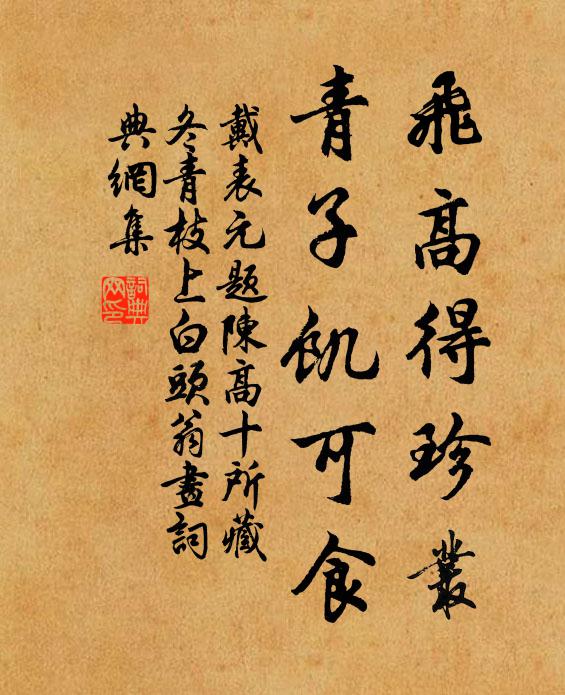 飛高得珍叢
青子飢可食
戴表元題陳高十所藏
冬青枝上白頭翁畫詞
典網集
詞典網印